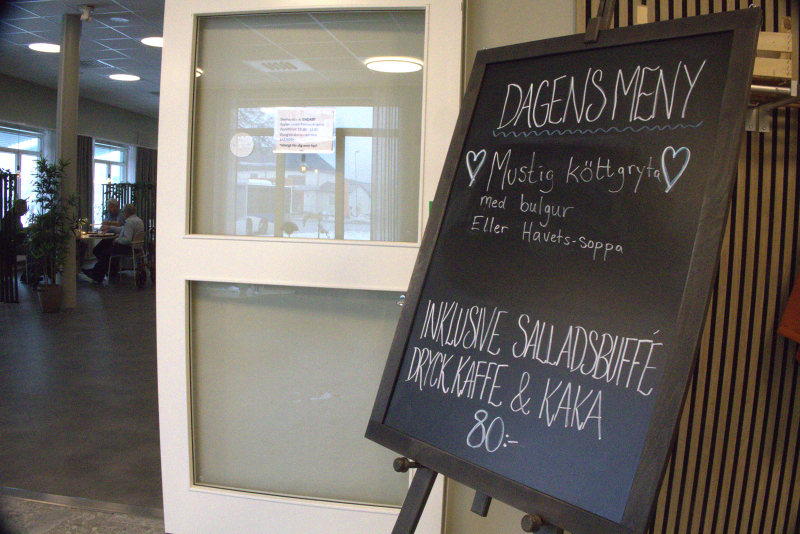 DAGENS MENY
Mustig köttgryta
med bulgur
Eller Havets-soppa
INKLUSIVE SALLADSBUFFÉ
DRYCK, KAFFE & KAKA
80:-